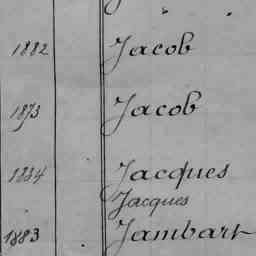 1882 Jacob
1873 Jacob
1834 Jacques
Jacques
1883 Jambart